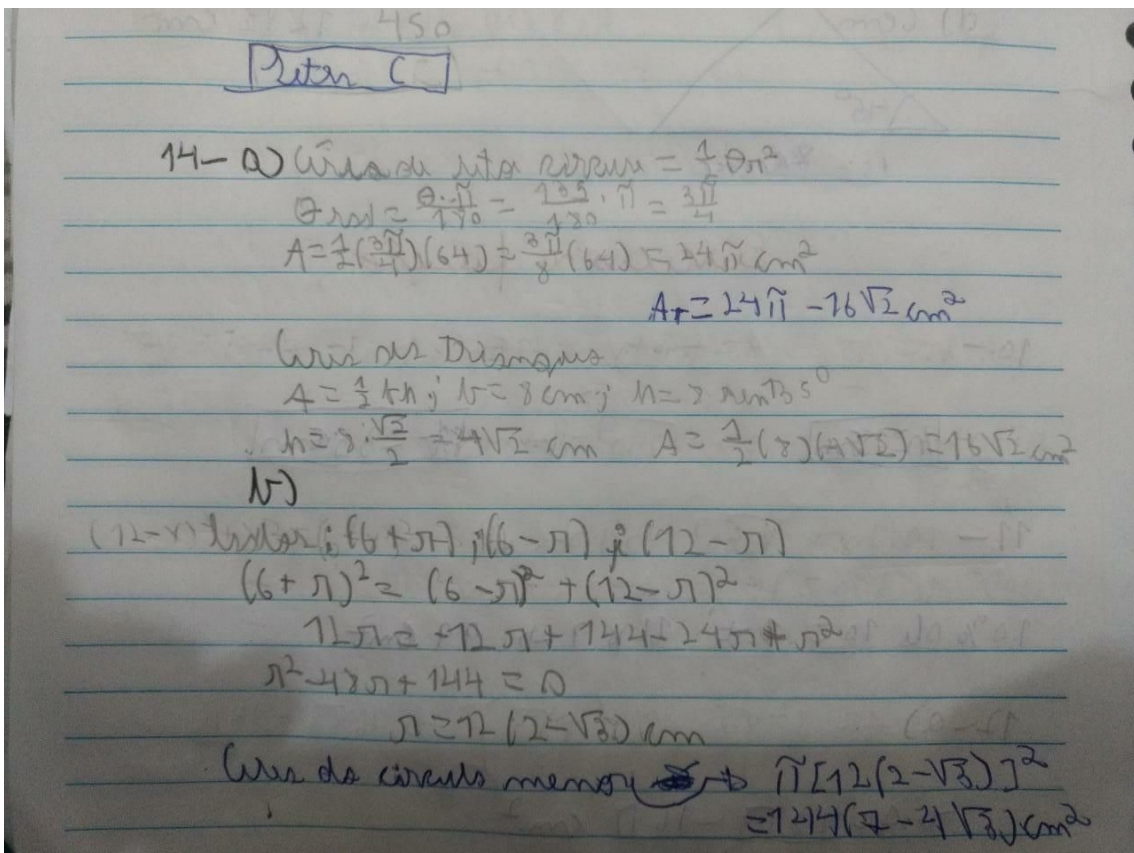 450
Letra C
14- a) Área do setor circular = 1/2 θr²
θ rad = θ·π/180 = 135/180 · π = 3π/4
A = 1/2 (3π/4)(64) = 3π/8 (64) = 24π cm²
Aт = 24π - 16√2 cm²
Área do Triângulo
A = 1/2 bh; b = 8 cm; h = 8 sen 135°
h = 8·√2/2 = 4√2 cm A = 1/2 (8)(4√2) = 16√2 cm²
b)
(12-r) lados: (6+r); (6-r); (12-r)
(6+r)² = (6-r)² + (12-r)²
12r = -12r + 144 - 24r + r²
r² - 48r + 144 = 0
r = 12(2-√3) cm
Área do círculo menor → π[12(2-√3)]²
= 144(7-4√3) cm²